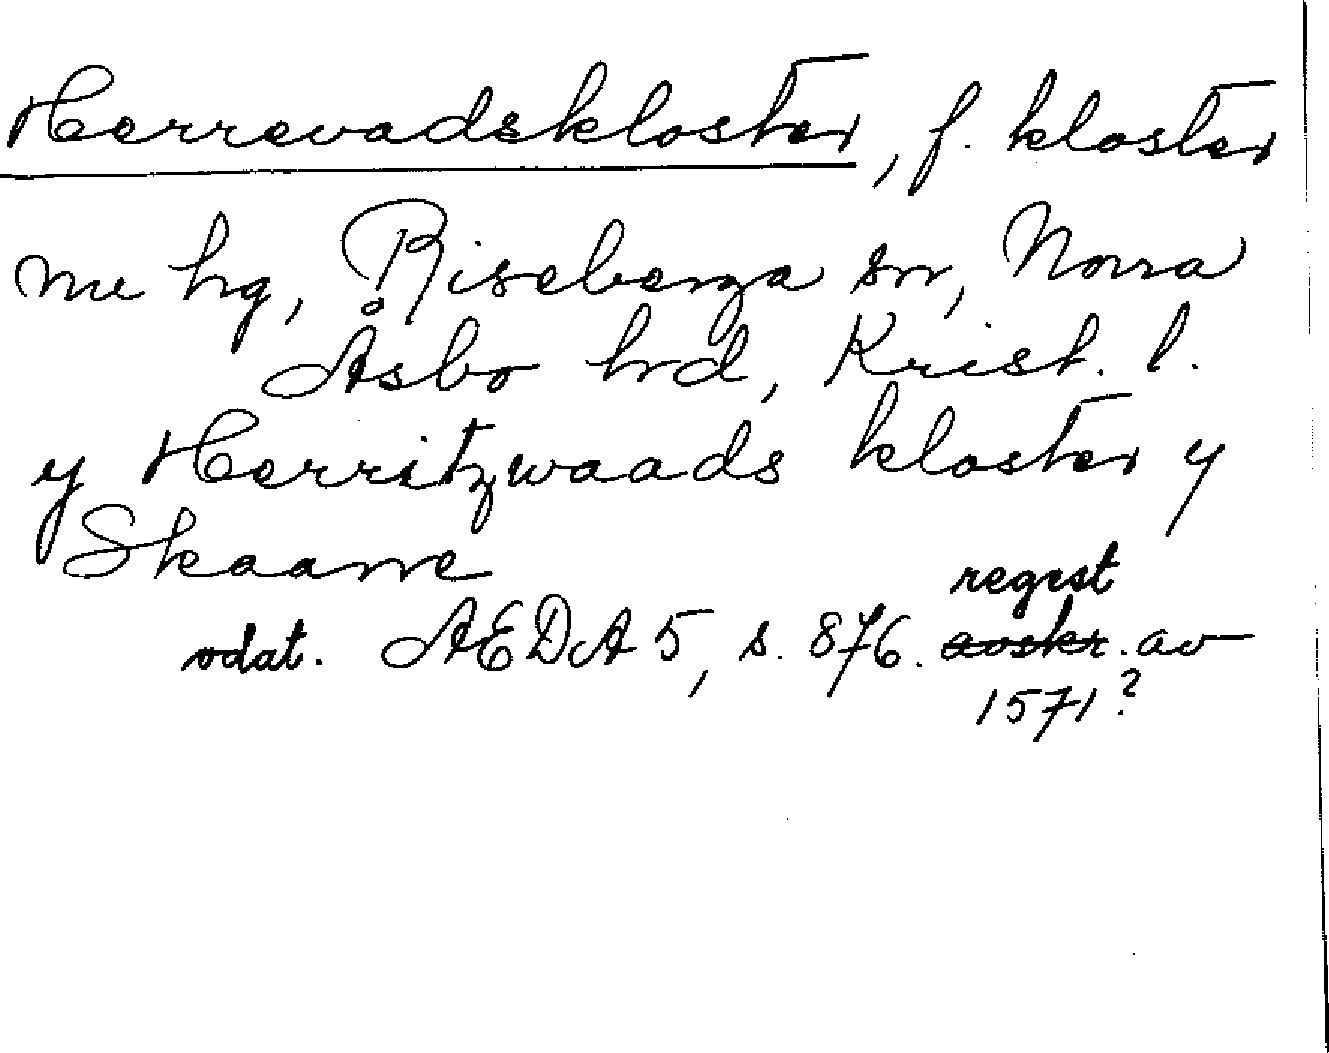 Herrevadskloster, f. kloster
nu hg, Riseberga sn, Norra
Åsbo hd, Krist. l.
y Herritzwaads kloster y
Skaane
regest
odat. AEDA 5, s. 876. avskr. av
1571?